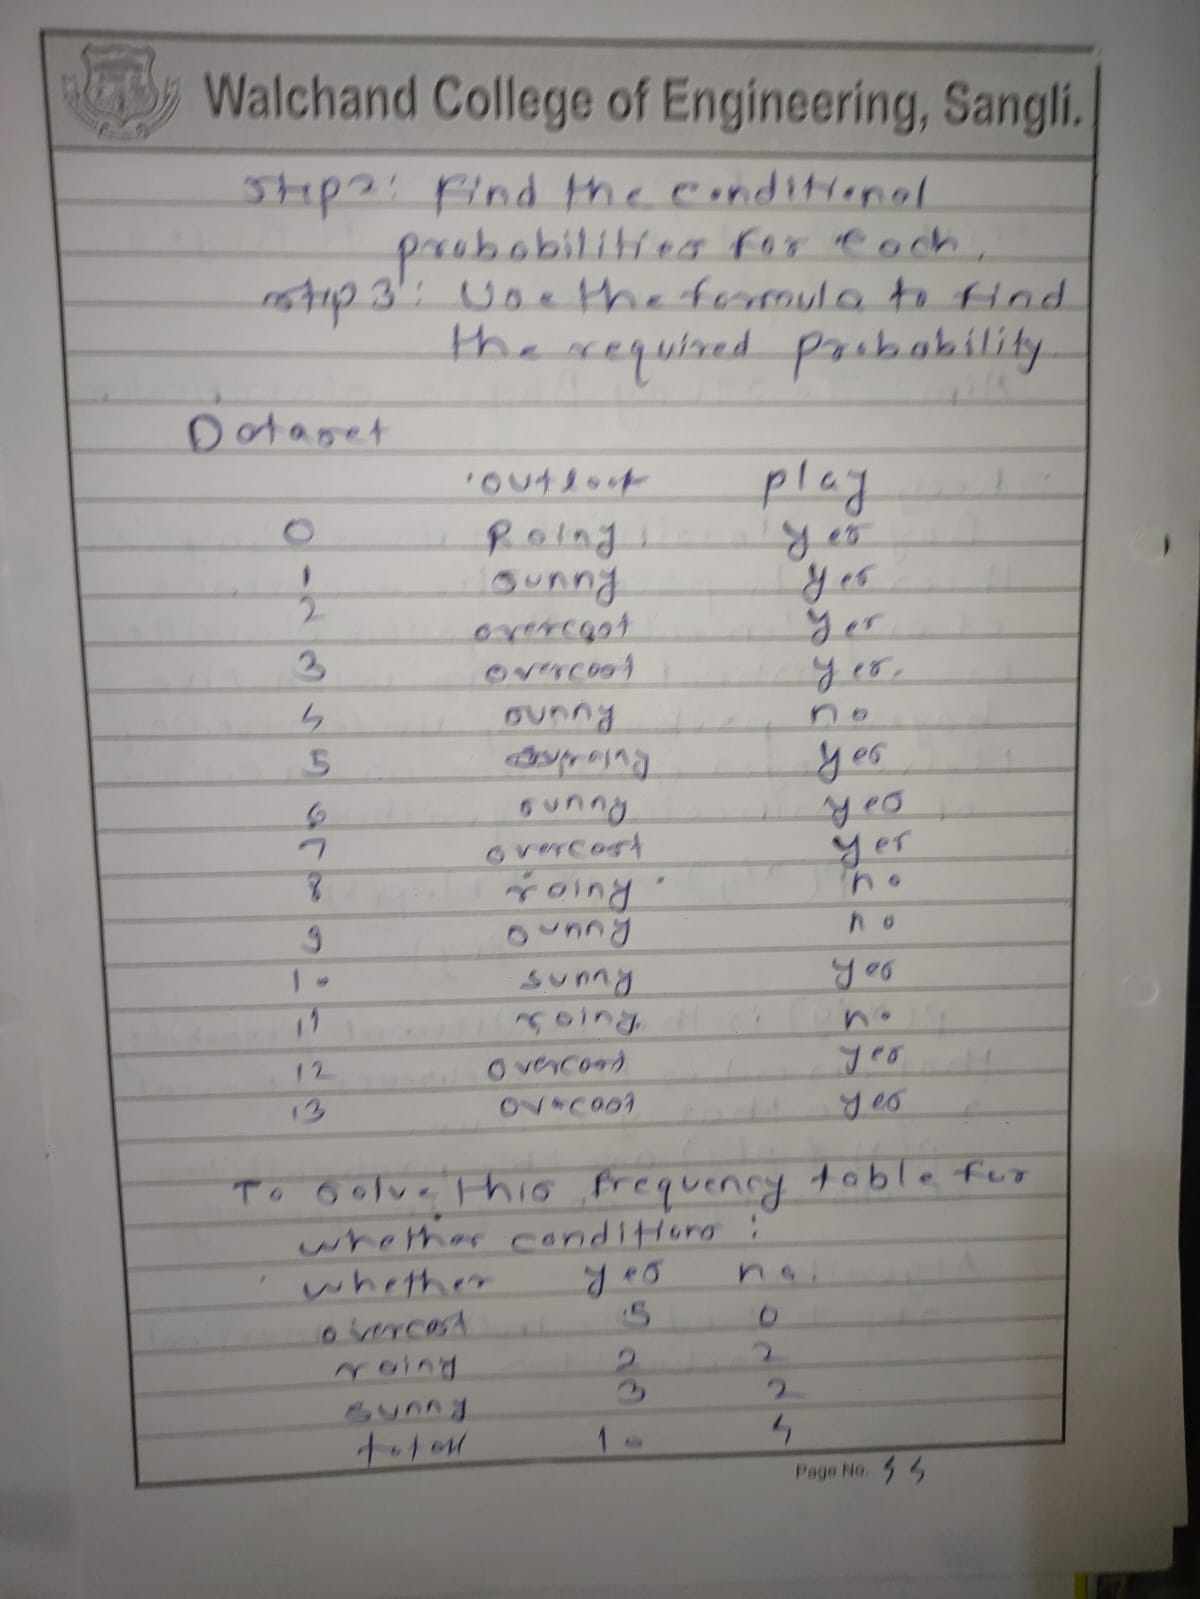 Walchand College of Engineering, Sangli.
Step2: Find the conditional
probabilities for each.
step 3: Use the formula to find
the required probability.
Dataset
outlook play
0 Rainy yes
1 sunny yes
2 overcast yes
3 overcast yes.
4 sunny no
5 rainy yes
6 sunny yes
7 overcast yes
8 rainy no
9 sunny no
10 sunny yes
11 rainy. no
12 overcast yes
13 overcast yes
To solve this frequency table for
whether conditions :
whether yes no.
overcast 5 0
rainy 2 2
sunny 3 2
total 10 4
Page No. 44